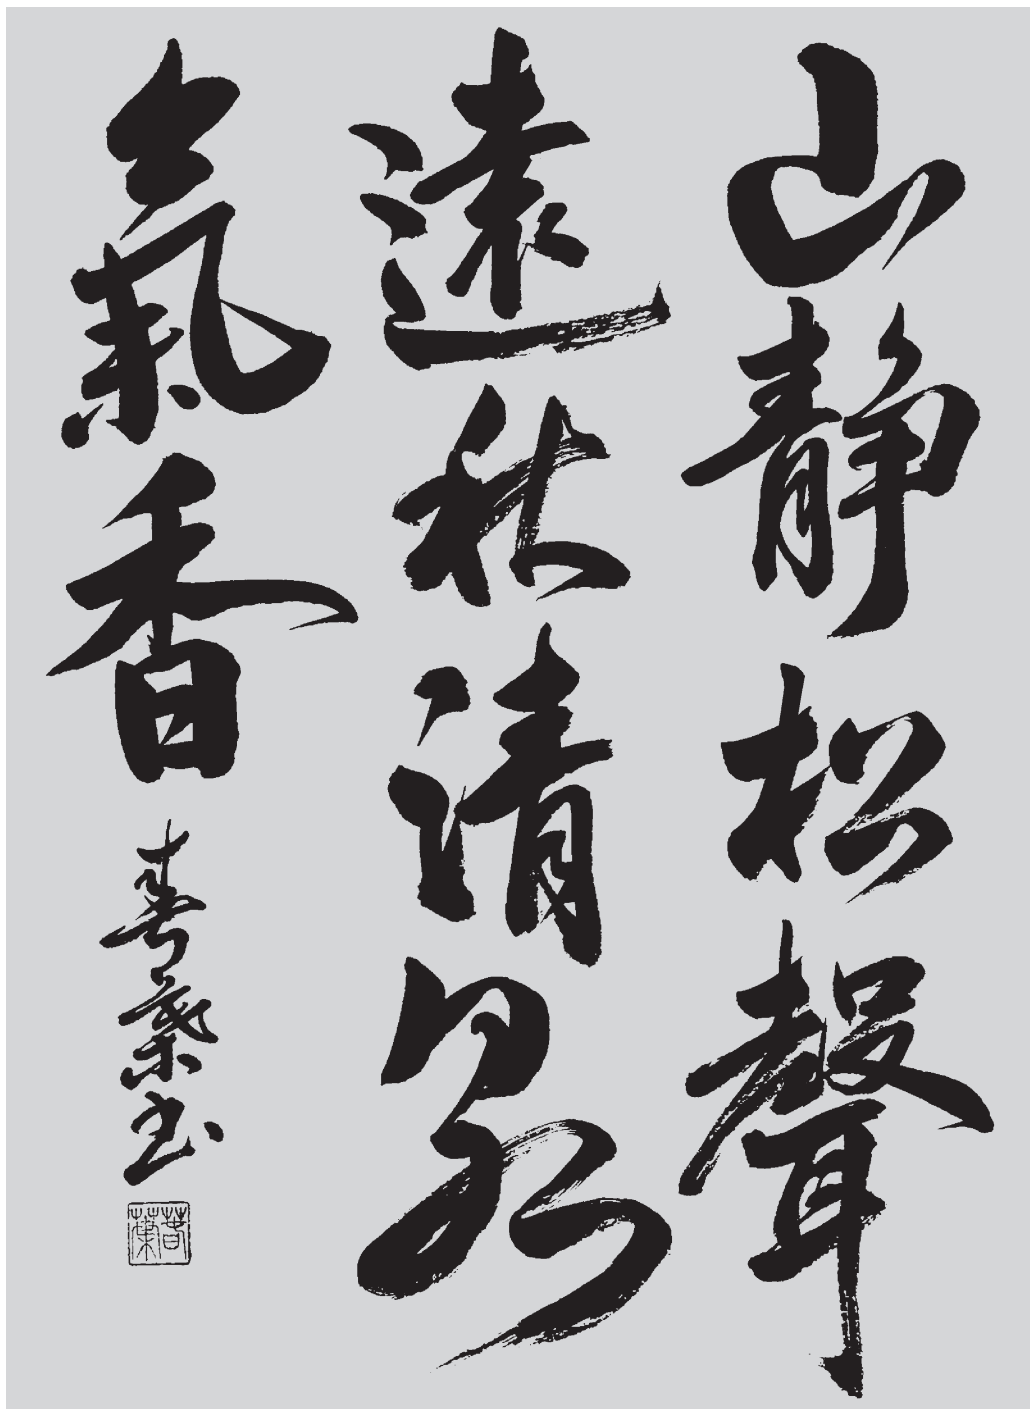 山静松聲
遠秋清泉
氣香
春葉书
春葉